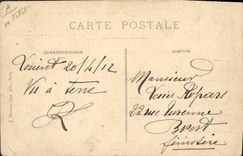 CARTE POSTALE
CORRESPONDANCE
ADRESSE
Lorient 20/4/12
Vu à terre
Monsieur
Louis Répars
22 rue Turenne
Brest
Finistère